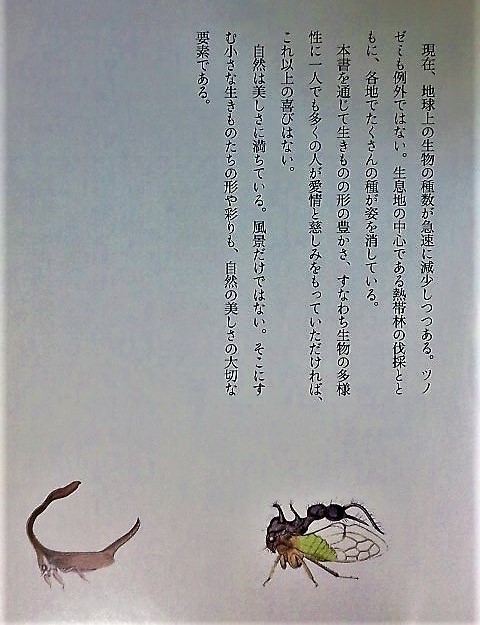 現在、地球上の生物の種数が急速に減少しつつある。ツノ
ゼミも例外ではない。生息地の中心である熱帯林の伐採とと
もに、各地でたくさんの種が姿を消している。
本書を通じて生きものの形の豊かさ、すなわち生物の多様
性に一人でも多くの人が愛情と慈しみをもっていただければ、
これ以上の喜びはない。
自然は美しさに満ちている。風景だけではない。そこにす
む小さな生きものたちの形や彩りも、自然の美しさの大切な
要素である。